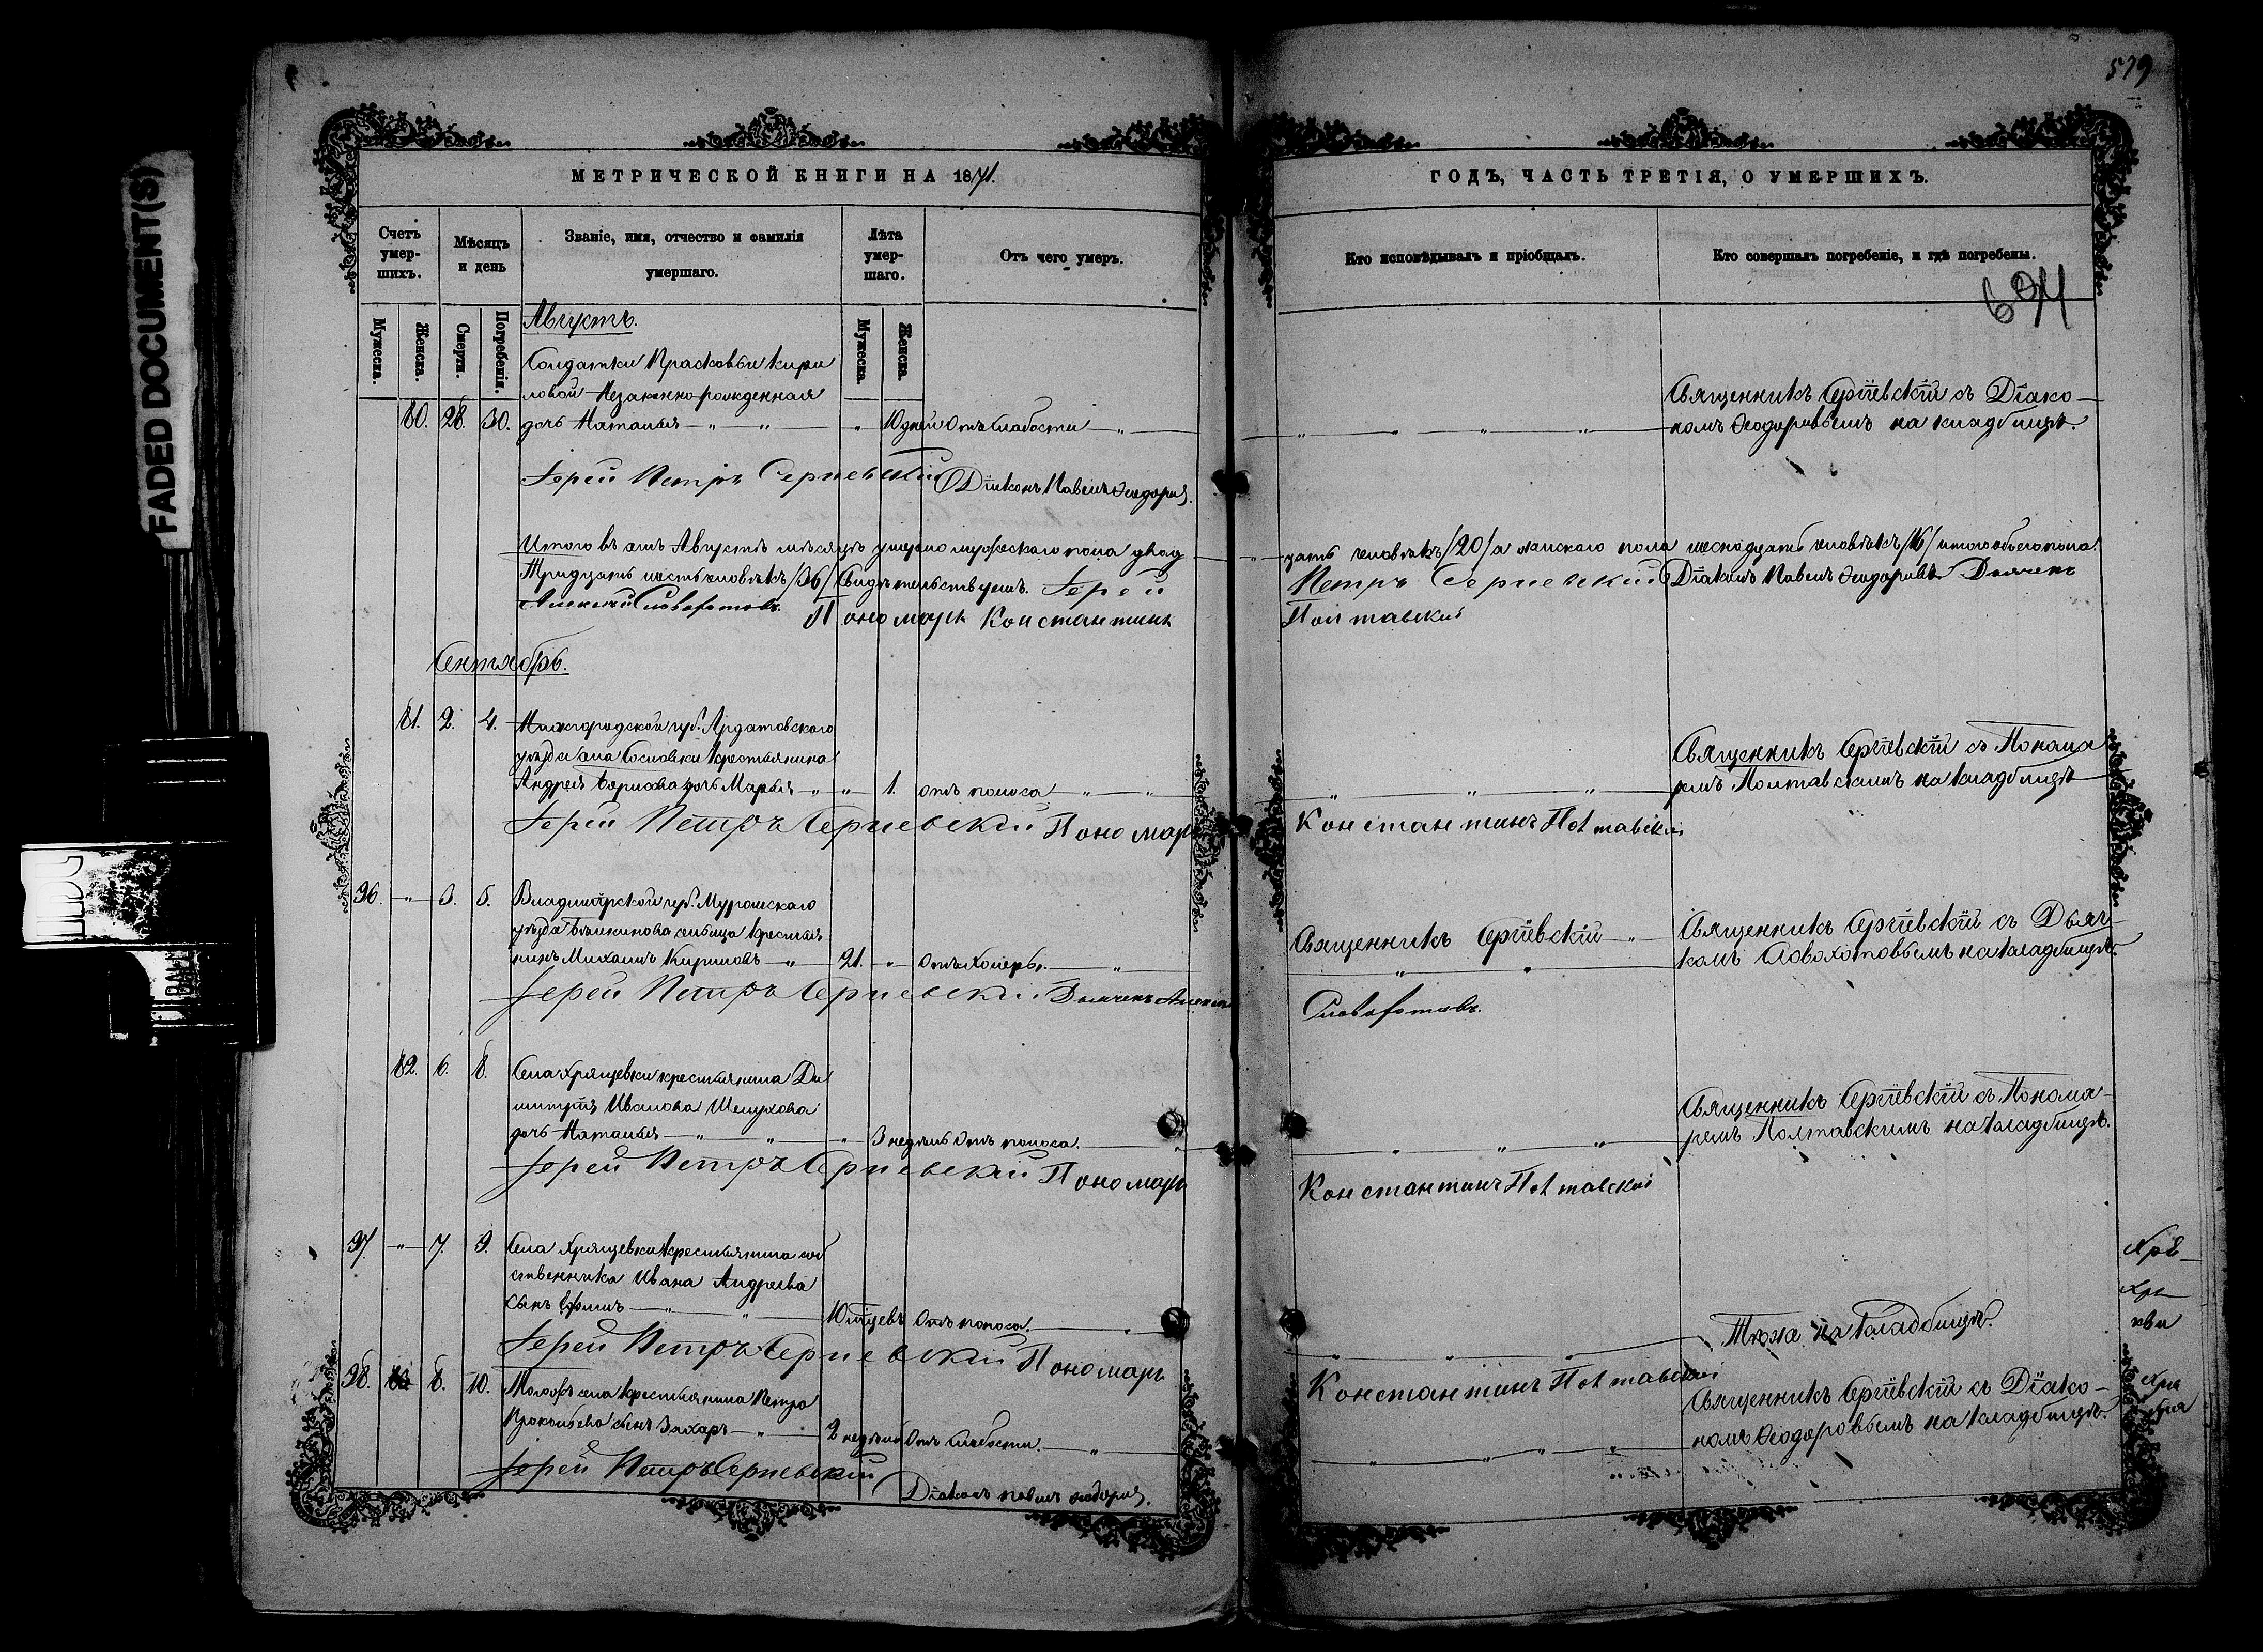 579
FADED DOCUMENT(S)
МЕТРИЧЕСКОЙ КНИГИ НА 1871.
ГОДЪ, ЧАСТЬ ТРЕТІЯ, О УМЕРШИХЪ.
Счетъ умер-шихъ.
Мѣсяцъ и день
Званіе, имя, отчество и фамилія умершаго.
Лѣта умер-шаго.
Отъ чего умеръ.
Кто исповѣдывалъ и пріобщалъ.
Кто совершалъ погребеніе, и гдѣ погребены.
694
Мужеска.
Женска.
Смерти.
Погребенія.
Мужеска.
Женска.
Августъ.
Солдатки Прасковьи Кири
ловой Незаконно рожденная
80. 28. 30. дочь Наталья 10 дней Отъ слабости
Священникъ Сергіевскій съ Діако-
номъ Ѳеодоровымъ на кладбищѣ.
Іерей Петръ Сергіевскій Діаконъ Павелъ Ѳеодоровъ.
Итого въ Августѣ мѣсяцѣ умерло мужескаго пола двад
цать человѣкъ /20/ а женскаго пола шеснадцать человѣкъ /16/ итого обоего пола
Тридцать шесть человѣкъ /36/ Свидѣтельствуемъ. Іерей
Петръ Сергіевскій Діаконъ Павелъ Ѳеодоровъ Дьячекъ
Алексѣй Словохотовъ. Пономарь Константинъ
Полтавскій
Сентябрь.
81. 2. 4. Нижегородской губ. Ардатовскаго
уѣзда села Сосновки крестьянина
Андрея Борисова дочь Марья 1. отъ поноса
Священникъ Сергіевскій съ Понома
ремъ Полтавскимъ на кладбищѣ
Іерей Петръ Сергіевскій Пономарь
Константинъ Полтавскій
96. 3. 5. Владимірской губ. Муромскаго
уѣзда сельца крестья
нинъ Михаилъ Кириловъ 21. Отъ холеры.
Священникъ Сергіевскій
Священникъ Сергіевскій съ Дьяч-
комъ Словохотовымъ на кладбищѣ.
Іерей Петръ Сергіевскій Дьячекъ Алексѣй
Словохотовъ.
82. 6. 8. Села Хрящевки крестьянина Ди
митрія Иванова Шелухова
дочь Наталья 3 недѣль Отъ поноса.
Священникъ Сергіевскій съ Понома-
ремъ Полтавскимъ на кладбищѣ.
Іерей Петръ Сергіевскій Пономарь
Константинъ Полтавскій
97. 7. 9. Села Хрящевки крестьянина соб
ственника Ивана Андреева
сынъ Ефимъ 10 мѣсяцевъ Отъ поноса.
Тѣже на кладбищѣ.
Іерей Петръ Сергіевскій Пономарь
Константинъ Полтавскій
98. 8. 10. села крестьянина Петра
Прокопьева сынъ Захаръ 2 недѣль Отъ слабости.
Священникъ Сергіевскій съ Діако-
номъ Ѳеодоровымъ на кладбищѣ.
Іерей Петръ Сергіевскій
Діаконъ Павелъ Ѳеодоровъ.